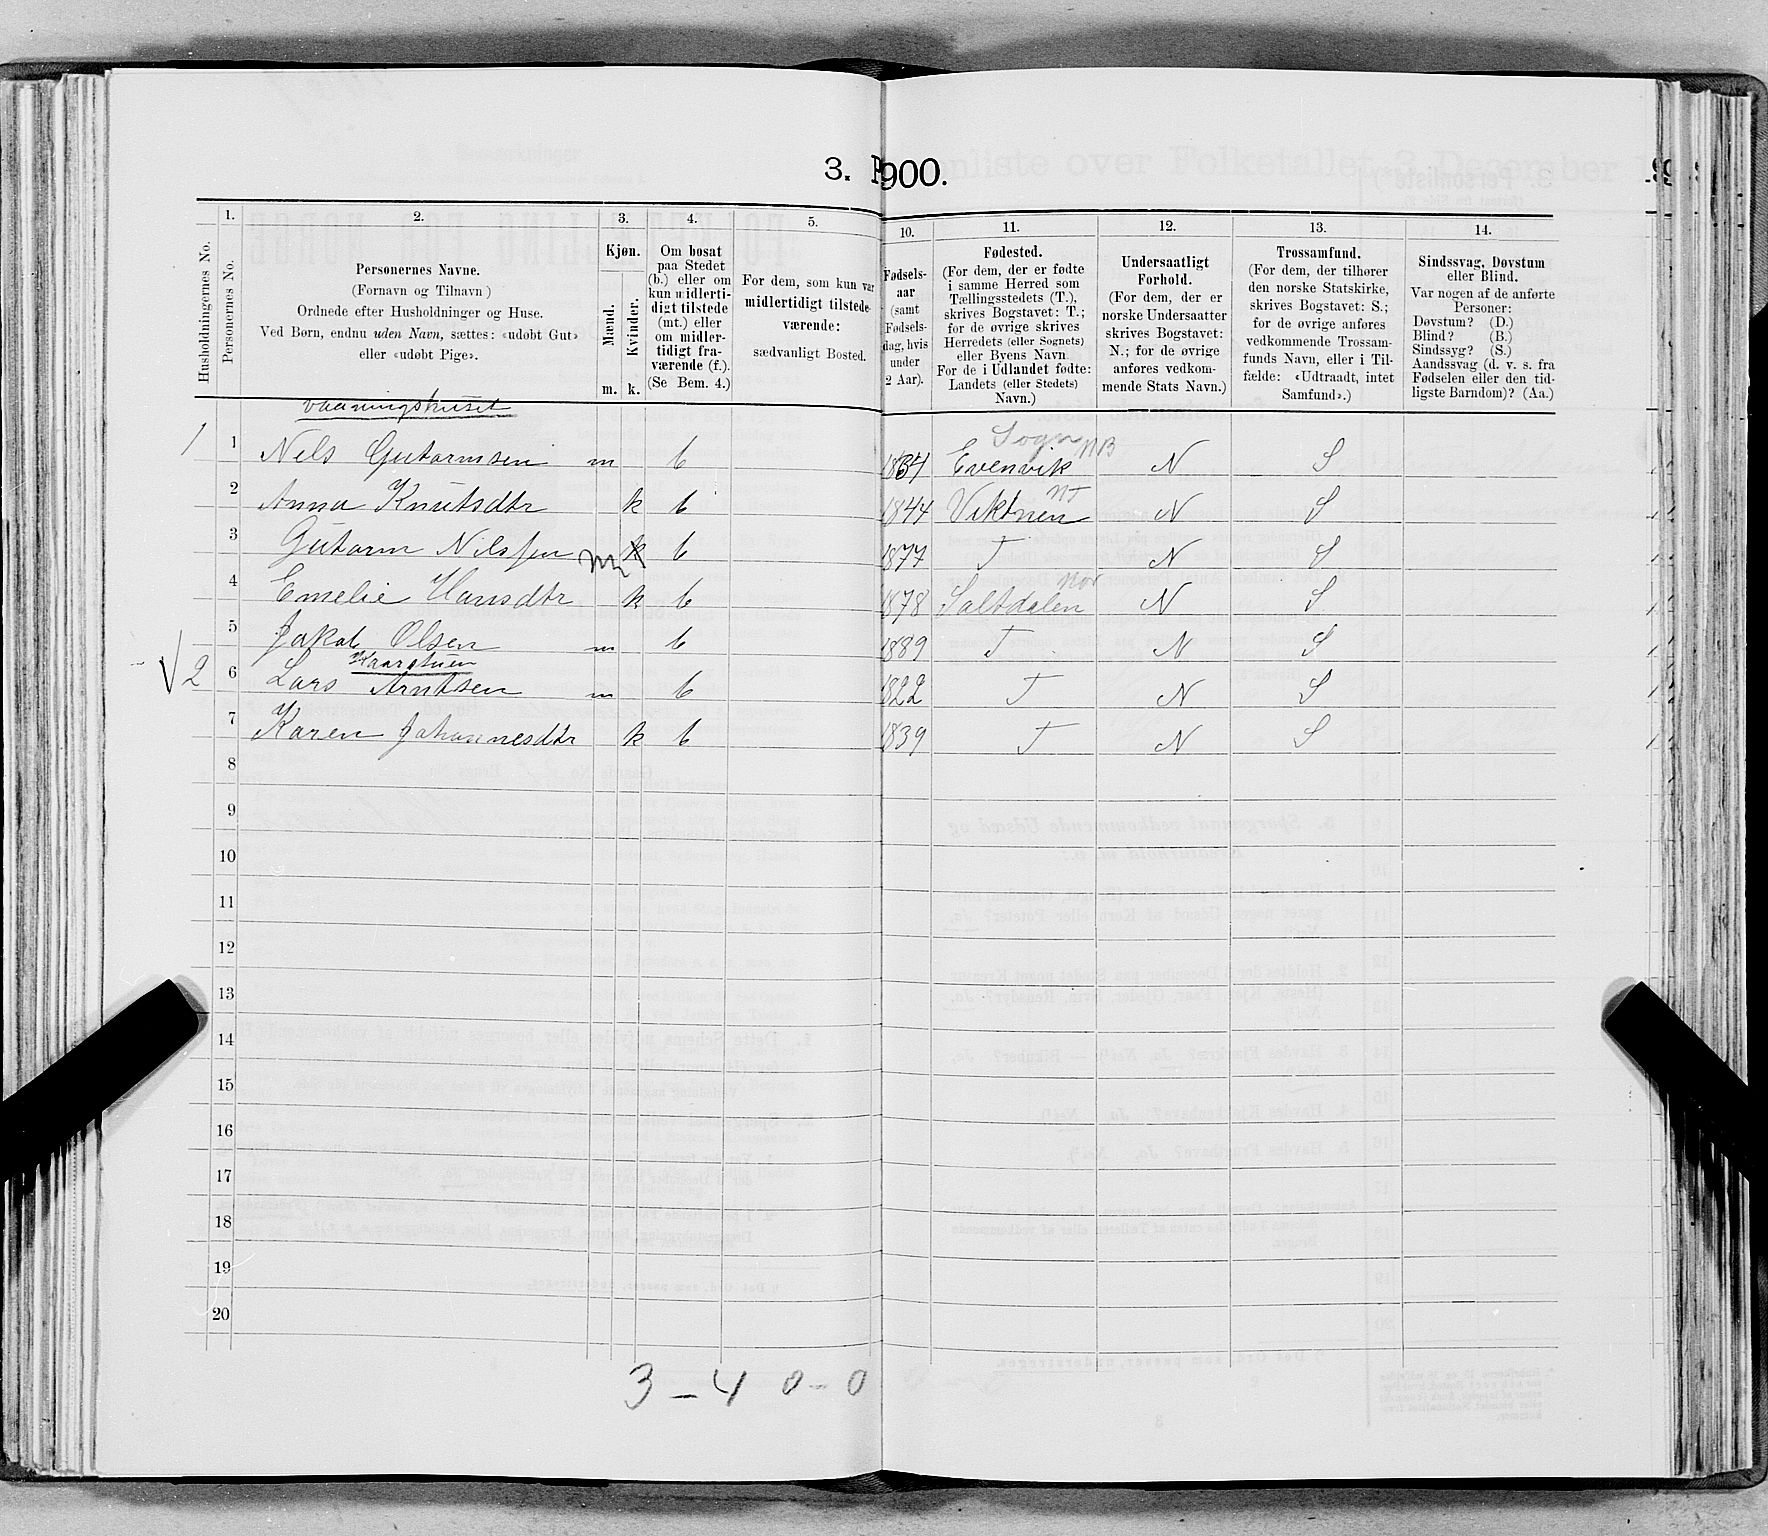 3. P 900.
1. 2. 3. 4. 5. 10. 11. 12. 13. 14.
Husholdningernes No.
Personernes No.
Personernes Navne.
(Fornavn og Tilnavn)
Ordnede efter Husholdninger og Huse.
Ved Børn, endnu uden Navn, sættes: «udøbt Gut»
eller «udøbt Pige».
Kjøn.
Mænd.
Kvinder.
m. k.
Om bosat
paa Stedet
(b.) eller om
kun midlerti-
digt tilstede
(mt.) eller
om midler-
tidigt fra-
værende (f.).
(Se Bem. 4.)
For dem, som kun var
midlertidigt tilstede-
værende:
sædvanligt Bosted.
Fødsels-
aar
(samt
Fødsels-
dag, hvis
under
2 Aar).
Fødested.
(For dem, der er fødte
i samme Herred som
Tællingsstedets (T.),
skrives Bogstavet: T.;
for de øvrige skrives
Herredets (eller Sognets)
eller Byens Navn.
For de i Udlandet fødte:
Landets (eller Stedets)
Navn.)
Undersaatligt
Forhold.
(For dem, der er
norske Undersaatter
skrives Bogstavet:
N.; for de øvrige
anføres vedkom-
mende Stats Navn.)
Trossamfund.
(For dem, der tilhører
den norske Statskirke,
skrives Bogstavet: S.;
for de øvrige anføres
vedkommende Trossam-
funds Navn, eller i Til-
fælde: «Udtraadt, intet
Samfund».)
Sindssvag, Døvstum
eller Blind.
Var nogen af de anførte
Personer:
Døvstum? (D.)
Blind? (B.)
Sindssyg? (S.)
Aandssvag (d. v. s. fra
Fødselen eller den tid-
ligste Barndom)? (Aa.)
vaaningshuset
Sogn NB
1 1 Nels Gutormsen m b 1834 Evenvik N S
2 Anna Knutsdtr k b 1844 Viktnen NT N S
3 Gutorm Nilssen m k b 1877 T N S
4 Emelie Hansdtr k b 1878 Saltdalen Nor N S
5 Jakob Olsen m b 1889 T N S
Kaarstuen
√ 2 6 Lars Arntsen m b 1822 T N S
7 Karen Johannesdtr k b 1839 T N S
8
9
10
11
12
13
14
15
16
17
18
19
20
3 – 4 0 – 0